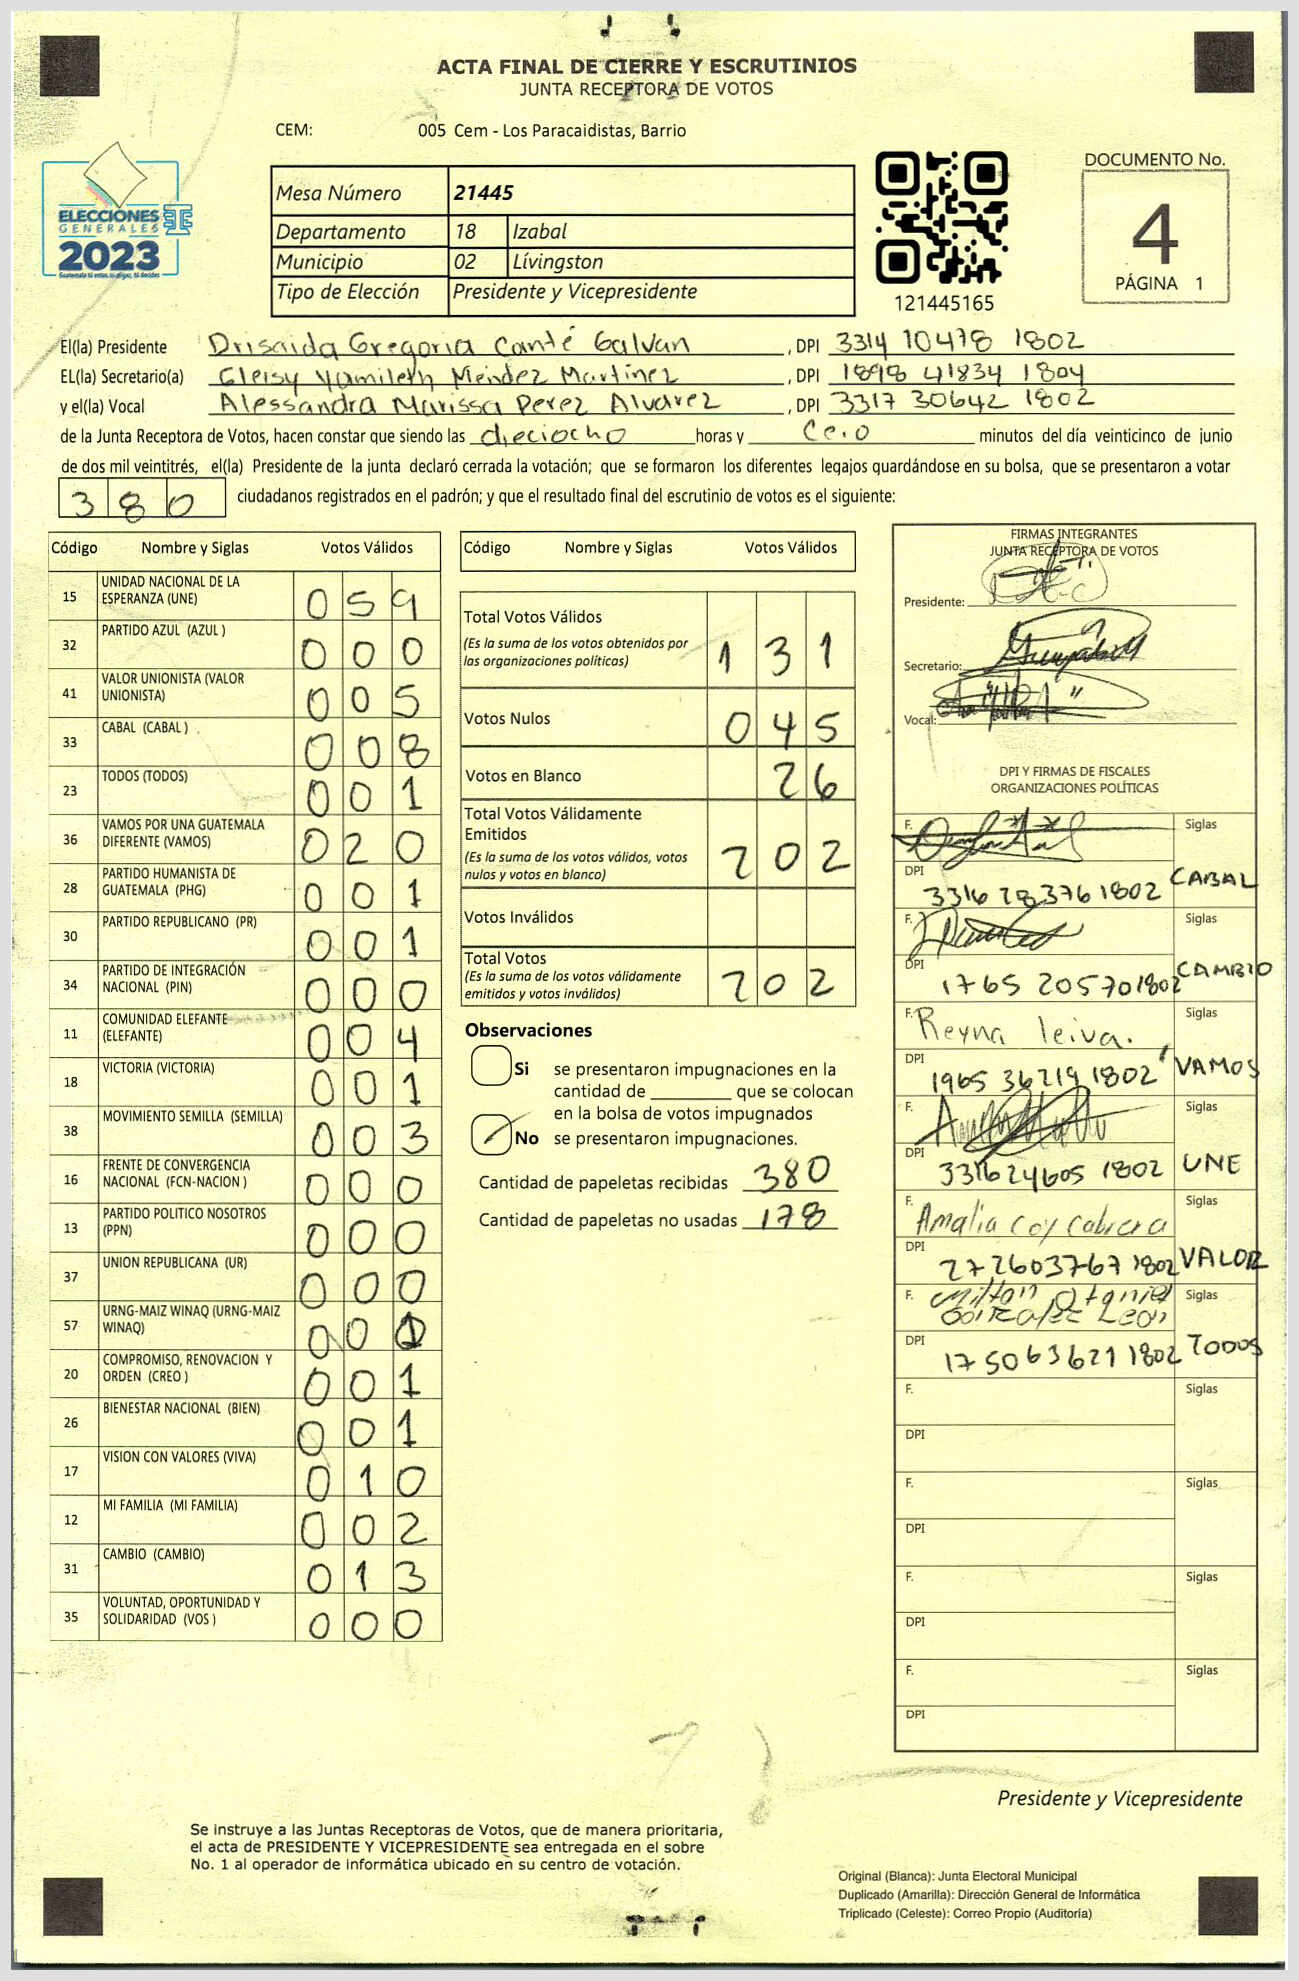 ACTA FINAL DE CIERRE Y ESCRUTINIOS
JUNTA RECEPTORA DE VOTOS
CEM: 005 Cem - Los Paracaidistas, Barrio
ELECCIONES
GENERALES
2023
Mesa Número 21445
Departamento 18 Izabal
Municipio 02 Lívingston
Tipo de Elección Presidente y Vicepresidente
121445165
DOCUMENTO No.
4
PÁGINA 1
El(la) Presidente Drisaida Gregoria Canté Galvan, DPI 3314 10478 1802
EL(la) Secretario(a) Gleisy Yamileth Méndez Martínez, DPI 1898 41834 1804
y el(la) Vocal Alessandra Marissa Perez Alvarez, DPI 3317 30642 1802
de la Junta Receptora de Votos, hacen constar que siendo las dieciocho horas y Cero minutos del día veinticinco de junio
de dos mil veintitrés, el(la) Presidente de la junta declaró cerrada la votación; que se formaron los diferentes legajos guardándose en su bolsa, que se presentaron a votar
380 ciudadanos registrados en el padrón; y que el resultado final del escrutinio de votos es el siguiente:
Código Nombre y Siglas Votos Válidos
15 UNIDAD NACIONAL DE LA ESPERANZA (UNE) 059
32 PARTIDO AZUL (AZUL ) 000
41 VALOR UNIONISTA (VALOR UNIONISTA) 005
33 CABAL (CABAL ) 008
23 TODOS (TODOS) 001
36 VAMOS POR UNA GUATEMALA DIFERENTE (VAMOS) 020
28 PARTIDO HUMANISTA DE GUATEMALA (PHG) 001
30 PARTIDO REPUBLICANO (PR) 001
34 PARTIDO DE INTEGRACIÓN NACIONAL (PIN) 000
11 COMUNIDAD ELEFANTE (ELEFANTE) 004
18 VICTORIA (VICTORIA) 001
38 MOVIMIENTO SEMILLA (SEMILLA) 003
16 FRENTE DE CONVERGENCIA NACIONAL (FCN-NACION ) 000
13 PARTIDO POLITICO NOSOTROS (PPN) 000
37 UNION REPUBLICANA (UR) 000
57 URNG-MAIZ WINAQ (URNG-MAIZ WINAQ) 001
20 COMPROMISO, RENOVACION Y ORDEN (CREO ) 001
26 BIENESTAR NACIONAL (BIEN) 001
17 VISION CON VALORES (VIVA) 010
12 MI FAMILIA (MI FAMILIA) 002
31 CAMBIO (CAMBIO) 013
35 VOLUNTAD, OPORTUNIDAD Y SOLIDARIDAD (VOS ) 000
Código Nombre y Siglas Votos Válidos
Total Votos Válidos 131
(Es la suma de los votos obtenidos por
las organizaciones políticas)
Votos Nulos 045
Votos en Blanco 26
Total Votos Válidamente
Emitidos 202
(Es la suma de los votos válidos, votos
nulos y votos en blanco)
Votos Inválidos
Total Votos 202
(Es la suma de los votos válidamente
emitidos y votos inválidos)
Observaciones
Si se presentaron impugnaciones en la
cantidad de ________ que se colocan
en la bolsa de votos impugnados
No se presentaron impugnaciones.
Cantidad de papeletas recibidas 380
Cantidad de papeletas no usadas 178
FIRMAS INTEGRANTES
JUNTA RECEPTORA DE VOTOS
Presidente:
Secretario:
Vocal:
DPI Y FIRMAS DE FISCALES
ORGANIZACIONES POLÍTICAS
F. Siglas
DPI 3316 28376 1802 CABAL
F. Siglas
DPI 1765 20570 1802 CAMBIO
F. Reyna leiva. Siglas
DPI 1965 36219 1802 VAMOS
F. Siglas
DPI 3316 24605 1802 UNE
F. Amalia Coy Cabrera Siglas
DPI 2726037671802 VALOR
F. Milton Otoniel Siglas
Gonzalez Leon
DPI 1750636211802 TODOS
F. Siglas
DPI
F. Siglas
DPI
F. Siglas
DPI
F. Siglas
DPI
Presidente y Vicepresidente
Se instruye a las Juntas Receptoras de Votos, que de manera prioritaria,
el acta de PRESIDENTE Y VICEPRESIDENTE sea entregada en el sobre
No. 1 al operador de informática ubicado en su centro de votación.
Original (Blanca): Junta Electoral Municipal
Duplicado (Amarilla): Dirección General de Informática
Triplicado (Celeste): Correo Propio (Auditoría)